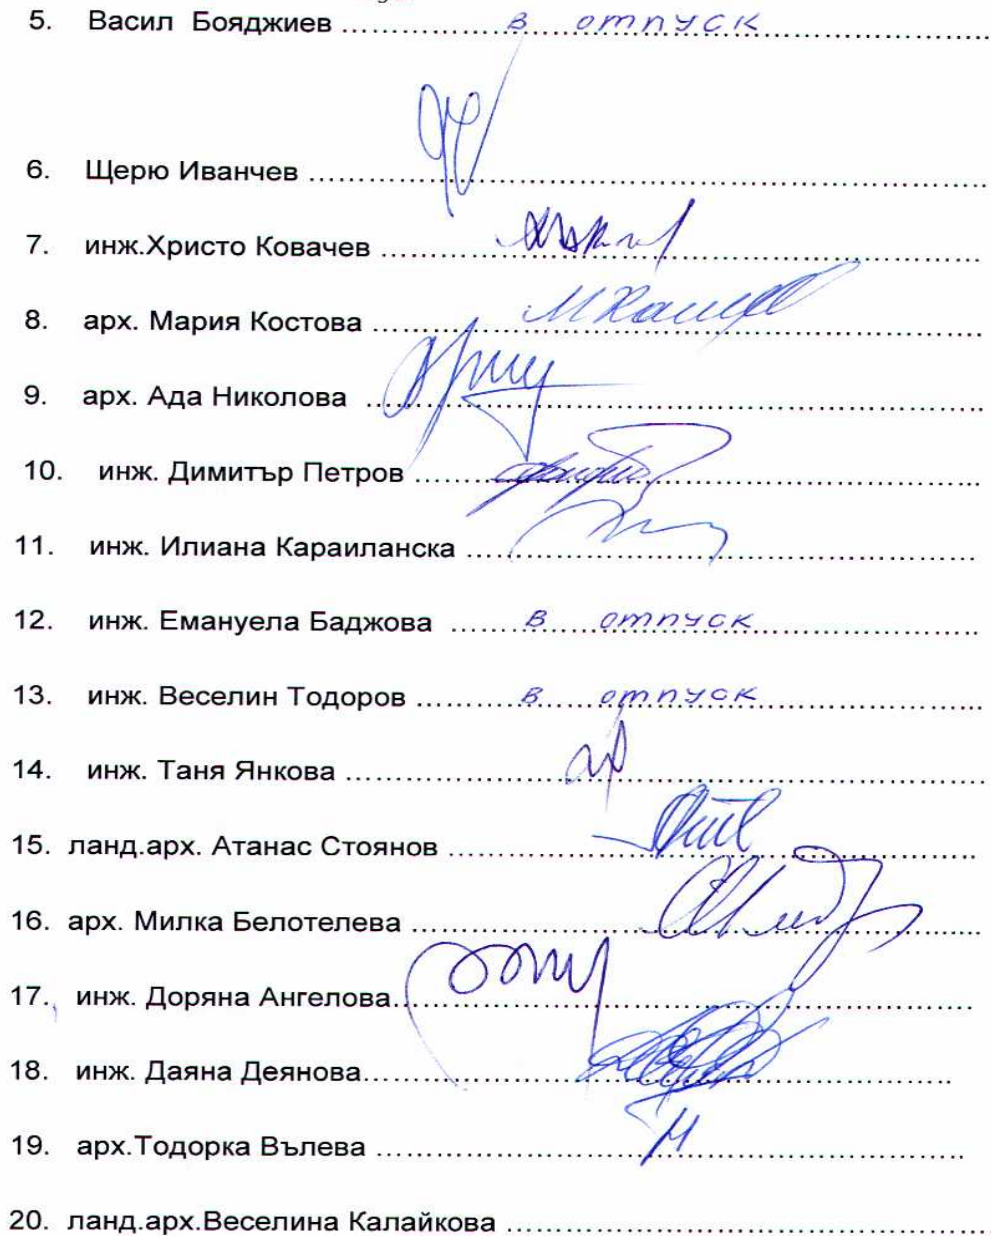 5. Васил Бояджиев ..... в отпуск .....
6. Щерю Иванчев .....
7. инж.Христо Ковачев .....
8. арх. Мария Костова .....
9. арх. Ада Николова .....
10. инж. Димитър Петров .....
11. инж. Илиана Караиланска .....
12. инж. Емануела Баджова ..... в отпуск .....
13. инж. Веселин Тодоров ..... в отпуск .....
14. инж. Таня Янкова .....
15. ланд.арх. Атанас Стоянов .....
16. арх. Милка Белотелева .....
17. инж. Доряна Ангелова.....
18. инж. Даяна Деянова.....
19. арх.Тодорка Вълева .....
20. ланд.арх.Веселина Калайкова .....